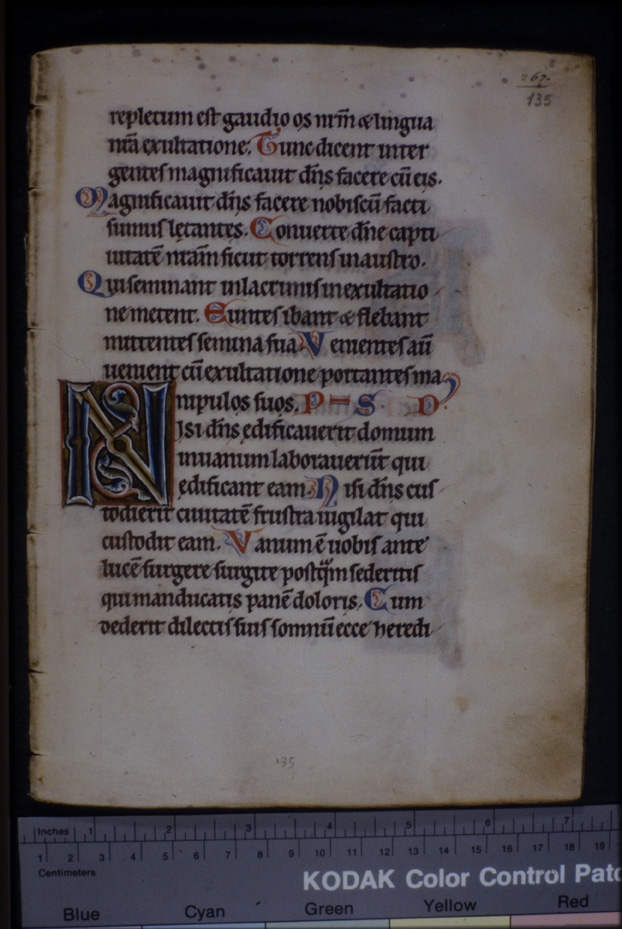 267.
135
repletum est gaudio os nr̄m & lingua
nr̄a exultatione. Tunc dicent inter
gentes magnificauit dn̄s facere cū eis.
Magnificauit dn̄s facere nobiscū facti
sumus lętantes. Conuerte dn̄e capti
uitatē nr̄am sicut torrens in austro.
Qui seminant in lacrimis in exultatio
ne metent. Euntes ibant & flebant
mittentes semina sua Venientes aū
uenient cū exultatione portantes ma
nipulos suos. P S D
Nisi dn̄s ędificauerit domum
in uanum laborauer̄t qui
ędificant eam. Nisi dn̄s cus
todierit ciuitatē frustra uigilat qui
custodit eam. Vanum ē uobis ante
lucē surgere surgite postq̄m sederitis
qui manducatis panē doloris. Cum
dederit dilectis suis somnū ecce heredi
135
Inches 1 2 3 4 5 6 7
1 2 3 4 5 6 7 8 9 10 11 12 13 14 15 16 17 18 19
Centimeters
KODAK Color Control Patc
Blue Cyan Green Yellow Red